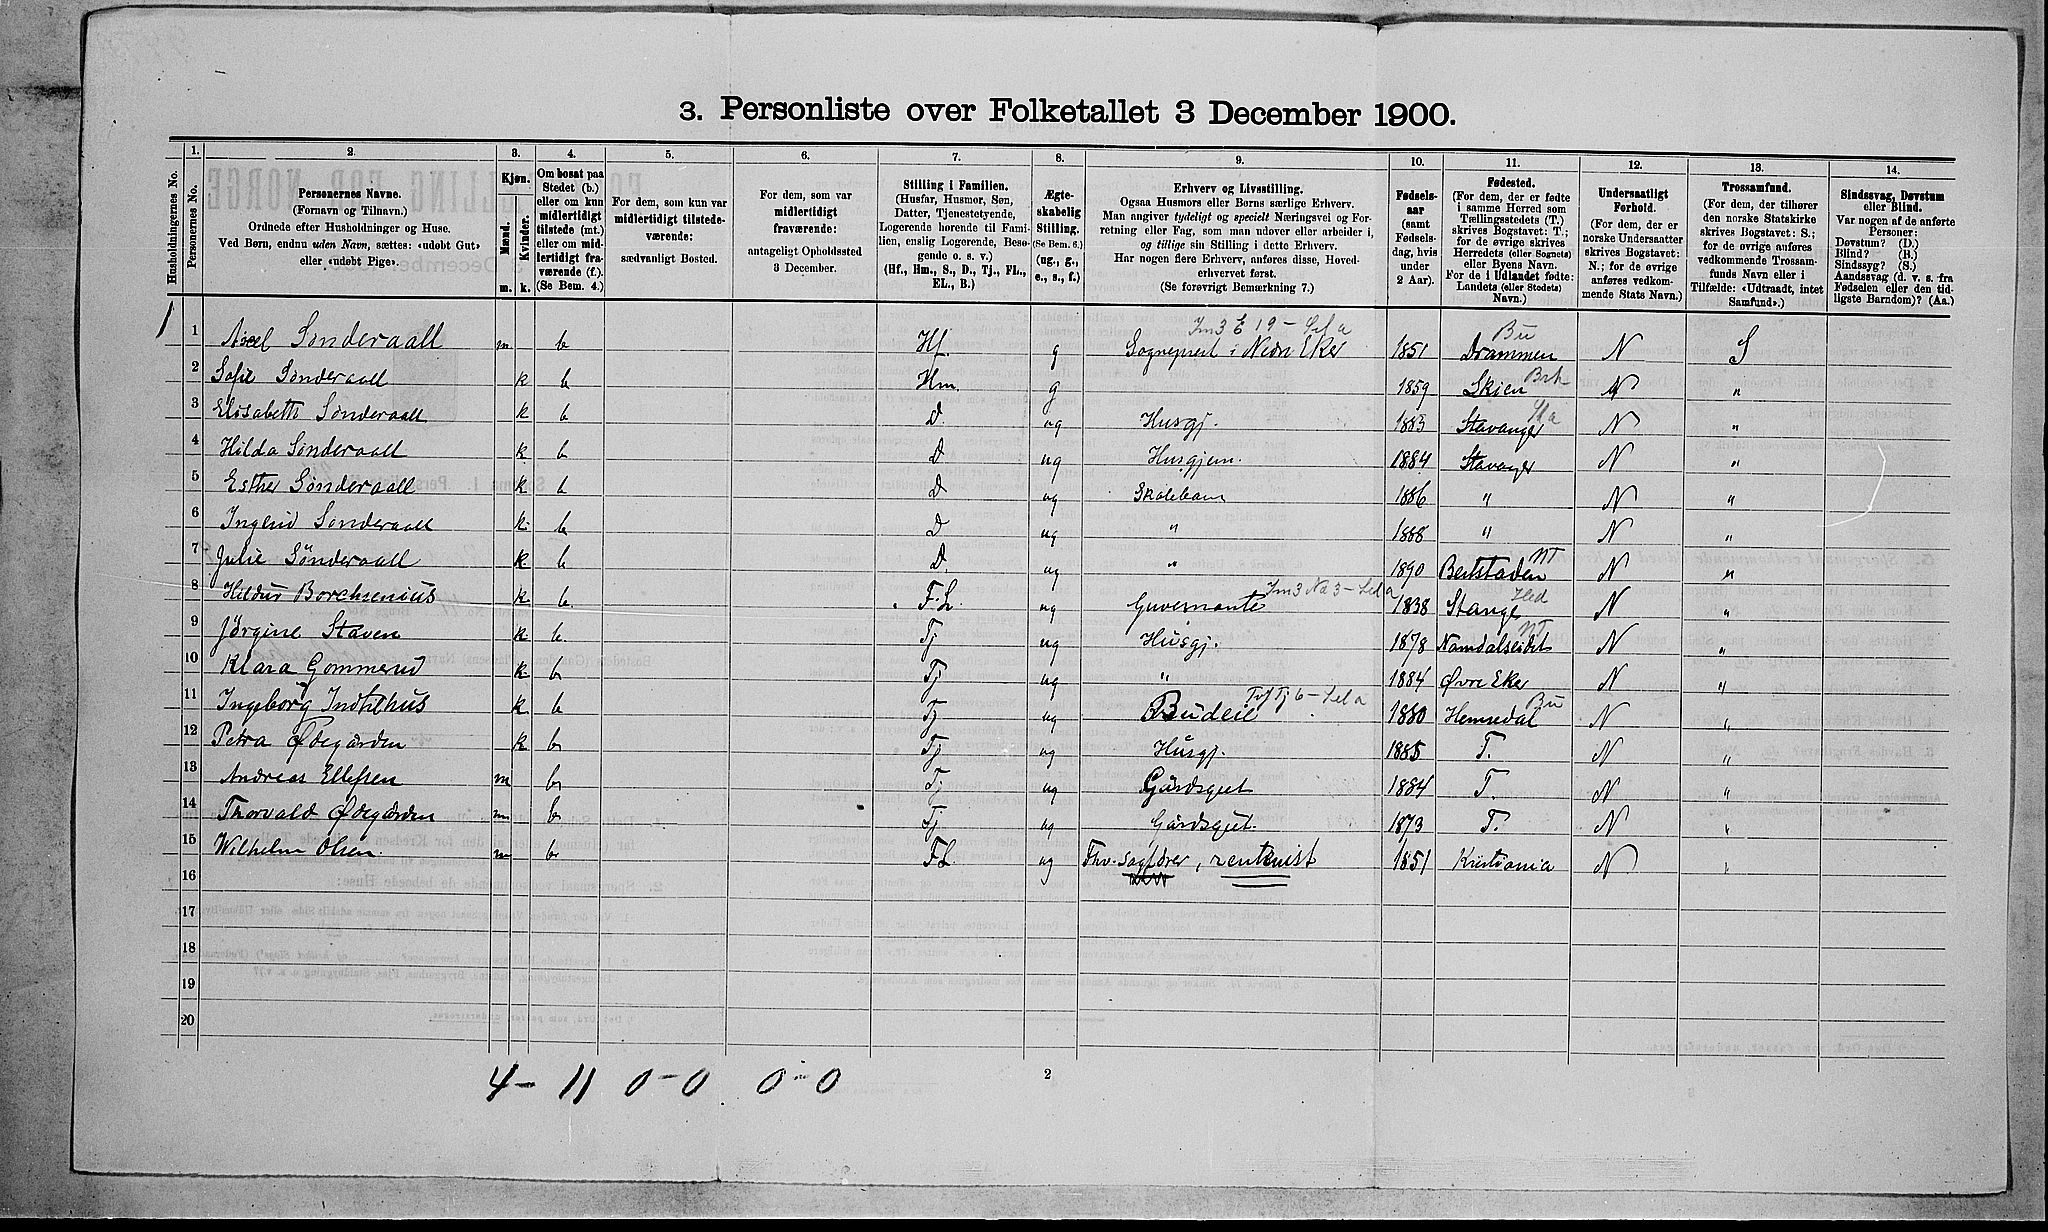 3. Personliste over Folketallet 3 December 1900.
1. 2. 3. 4. 5. 6. 7. 8. 9. 10. 11. 12. 13. 14.
Husholdningernes No.
Personernes No.
Personernes Navne.
(Fornavn og Tilnavn.)
Ordnede efter Husholdninger og Huse.
Ved Børn, endnu uden Navn, sættes: «udøbt Gut»
eller «udøbt Pige».
Kjøn.
Mænd. Kvinder.
m. k.
Om bosat paa
Stedet (b.)
eller om kun
midlertidigt
tilstede (mt.)
eller om mid-
lertidigt fra-
værende (f.)
(Se Bem. 4.)
For dem, som kun var
midlertidigt tilstede-
værende:
sædvanligt Bosted.
For dem, som var
midlertidigt
fraværende:
antageligt Opholdssted
3 December.
Stilling i Familien.
(Husfar, Husmor, Søn,
Datter, Tjenestetyende,
Logerende hørende til Fami-
lien, enslig Logerende, Besø-
gende o. s. v.)
(Hf., Hm., S., D., Tj., FL.,
EL., B.)
Ægte-
skabelig
Stilling.
(Se Bem. 6.)
(ug., g.,
e., s., f.)
Erhverv og Livsstilling.
Ogsaa Husmors eller Børns særlige Erhverv.
Man angiver tydeligt og specielt Næringsvei og For-
retning eller Fag, som man udøver eller arbeider i,
og tillige sin Stilling i dette Erhverv.
Har nogen flere Erhverv, anføres disse, Hoved-
erhvervet først.
(Se forøvrigt Bemærkning 7.)
Fødsels-
aar
(samt
Fødsels-
dag, hvis
under
2 Aar).
Fødested.
(For dem, der er fødte
i samme Herred som
Tællingsstedets (T.)
skrives Bogstavet: T.;
for de øvrige skrives
Herredets (eller Sognets)
eller Byens Navn.
For de i Udlandet fødte:
Landets (eller Stedets)
Navn.)
Undersaatligt
Forhold.
(For dem, der er
norske Undersaatter
skrives Bogstavet:
N.; for de øvrige
anføres vedkom-
mende Stats Navn.)
Trossamfund.
(For dem, der tilhører
den norske Statskirke
skrives Bogstavet: S.;
for de øvrige anføres
vedkommende Trossam-
funds Navn eller i
Tilfælde: «Udtraadt, intet
Samfund».)
Sindssvag, Døvstum
eller Blind.
Var nogen af de anførte
Personer:
Døvstum? (D.)
Blind? (B.)
Sindssyg? (S.)
Aandssvag (d. v. s. fra
Fødselen eller den tid-
ligste Barndom)? (Aa.)
1 1 Axel Sønderaall m b Hf. g Sogneprest i Nedre Eker 1851 Drammen Bu N S
2 Sofie Sønderaall k b Hm. g 1859 Skien N "
3 Elisabeth Sønderaall k b D. ug Husgj. 1883 Stavanger N "
4 Hilda Sønderaall k b D ug Husgjern. 1884 Stavanger N "
5 Esther Sønderaall k b D ug Skolebarn 1886 " N "
6 Ingrid Sønderaall k b D ug " 1888 " N "
7 Julie Sønderaall k b D. ug " 1890 NT N "
8 Hildur Borchsenius k b F.L. ug Guvernante 1838 Stange Hed N "
9 Jørgine Staven k b Tj ug Husgj. 1878 Namdalseidet NT N "
10 Klara Gommerud k b Tj ug " 1884 Øvre Eker N "
11 Ingeborg Indtilhus k b Tj ug Budeie 1880 Hemsedal Bu N "
12 Petra Ødegården k b Tj ug Husgj. 1885 T. N "
13 Andreas Ellefsen m b Tj ug Gårdsgut 1884 T. N "
14 Thorvald Ødegården m b Tj ug Gårdsgut. 1873 T. N "
15 Wilhelm Olsen. m b F.L. ug Fhv. Sagfører, rentenist 1851 Kristiania N "
16
17
18
19
20
4 - 11 0 - 0 0 - 0
2